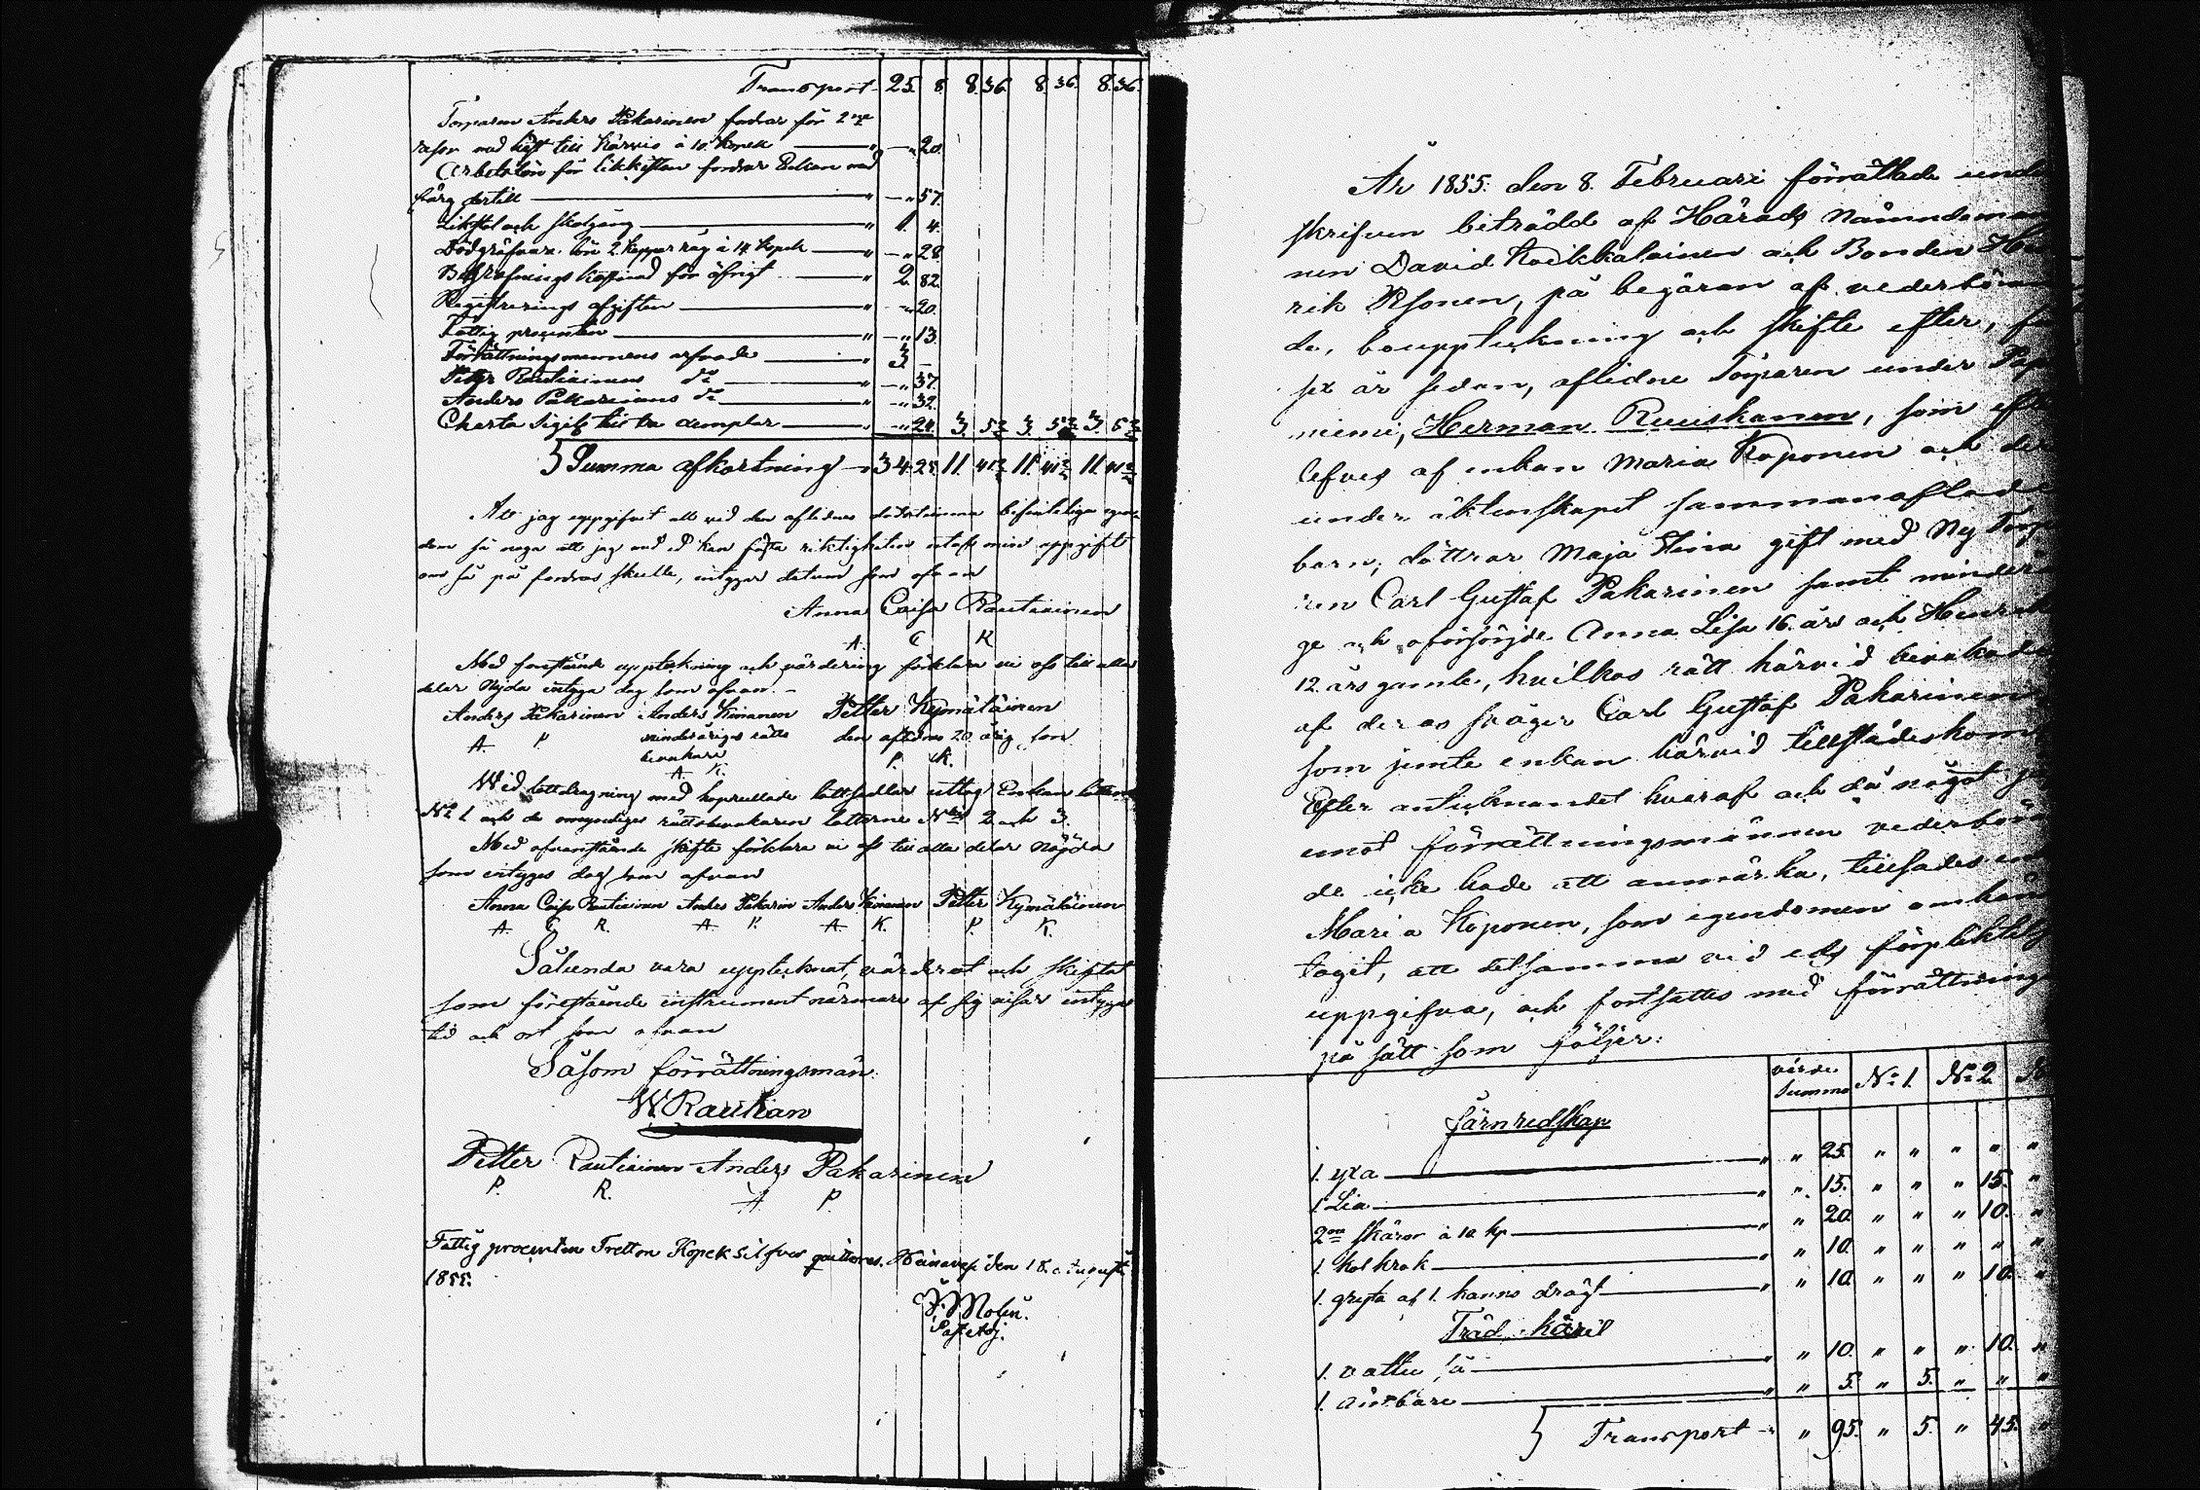 Transport 25. 8. 8. 36. 8. 36. 8. 36.
Torparen Anders Pakarinen fordrar för 2ne
à 10 Kopek — „ 20.
Arbetslön för likkistan fordrar Enkan med
färg dertill — „ 57.
och — „ 1. 4.
Dödgräfvare lön 2. kappar råg à 14 Kopek — „ 28.
Begrafnings kostnad för öfrigt — „ 2. 82.
Registrerings afgiften — „ 20.
Fattig procenten — „ 13.
Förrättningsmennens arfvode — „ 3. —
Petter Rautiainens do — „ 37.
Anders Pakarinens do — „ 32.
Charta Sigill. — „ 24. 3. 3. 3.
Summa afkortning 34. 11. 11. 11.
jag uppgifvit all vid den aflidnes dödstimma befinteliga egen
dom så noga att jag med ed kan fästa riktigheten utaf min uppgift
om så på fordras skulle, intygar datum som ofvan
Anna Caisa Rautiainen
A. C. R.
Med forestående uppteckning och värdering förklara vi oss till alla
delar nöjda intyga dag som ofvan. —
Anders Pakarinen Anders Kinnanen Petter Kymäläinen
A P minderåriges rätts den aflidnes 20 årig son
bevakare P. K.
A K.
Wid lottdragning med hoprullade lottsedlar uttog Enkan lotten
No 1 och de omyndiges rättsbevakaren lotterne 2 och 3.
Med ofvanstående skifte förklara vi oss till alla delar nöjda
som intygas dag som ofvan
Anna Caisa Rautiainen Anders Pakarin Anders Kinnanen Petter Kymäläinen
A. C. R. A P. A K. P. K.
Sålunda vara upptecknat, värderat och skiftat
som förestående instrument närmare af sig visar intygar
tid och ort som ofvan
Såsom förrättningsmän:
W Rautian
Petter Rautiainen Anders Pakarinen
P. R. A P.
Fattig procenten Tretton Kopek silfver qvitteras. Heinävesi den 18. Augusti
1855.
Molin.
Past. Adj.
År 1855. den 8. Februari förrättade unde
skrifven biträdd af Härads Nämndeman
nen David och Bonden Hen
rik Ikonen, på begäran af vederböran
de, bouppteckning och skifte efter, för
sex år sedan, aflidne Torparen under Pap
niemi, Herman Ruuskanen, som efter
lefves af enkan Maria Koponen och der
under äktenskapet sammanaflade
barn; döttrar Maja Stina gift med Ny Torpa
ren Carl Gustaf Pakarinen samt minderåri
ge och oförsörjde Anna Lisa 16. års och Henrik
12. års gamle, hvilkas rätt härvid bevakades
af deras svåger Carl Gustaf Pakarinen
som jemte enkan härvid tillstädeskom
Efter antecknandet hvaraf och då något
emot förrättningsmännen vederböran
de icke hade att anmärka, tillsades
Maria Koponen, som egendomen omhän
tagit, att detsamma vid eds förpliktelse
uppgifva, och fortsattes med förrättningen
på sätt som följer:
värde Summa No 1. No 2
Järnredskap
1. yxa — „ „ 25. „ „ „ „ „
1 Lia — „ „ 15. „ „ „ 15. „
2ne skäror à 10 kp — „ „ 20. „ „ „ 10. „
1. kolkrok — „ „ 10. „ „ „ „ „
1. gryta af 1. kanns drägt — „ „ 10. „ „ „ 10. „
Träd käril
1. vattu så — „ „ 10. „ „ „ 10. „
1. ämbare — „ „ 5. „ 5. „ „ „
Transport — „ 95. „ 5. „ 45. „